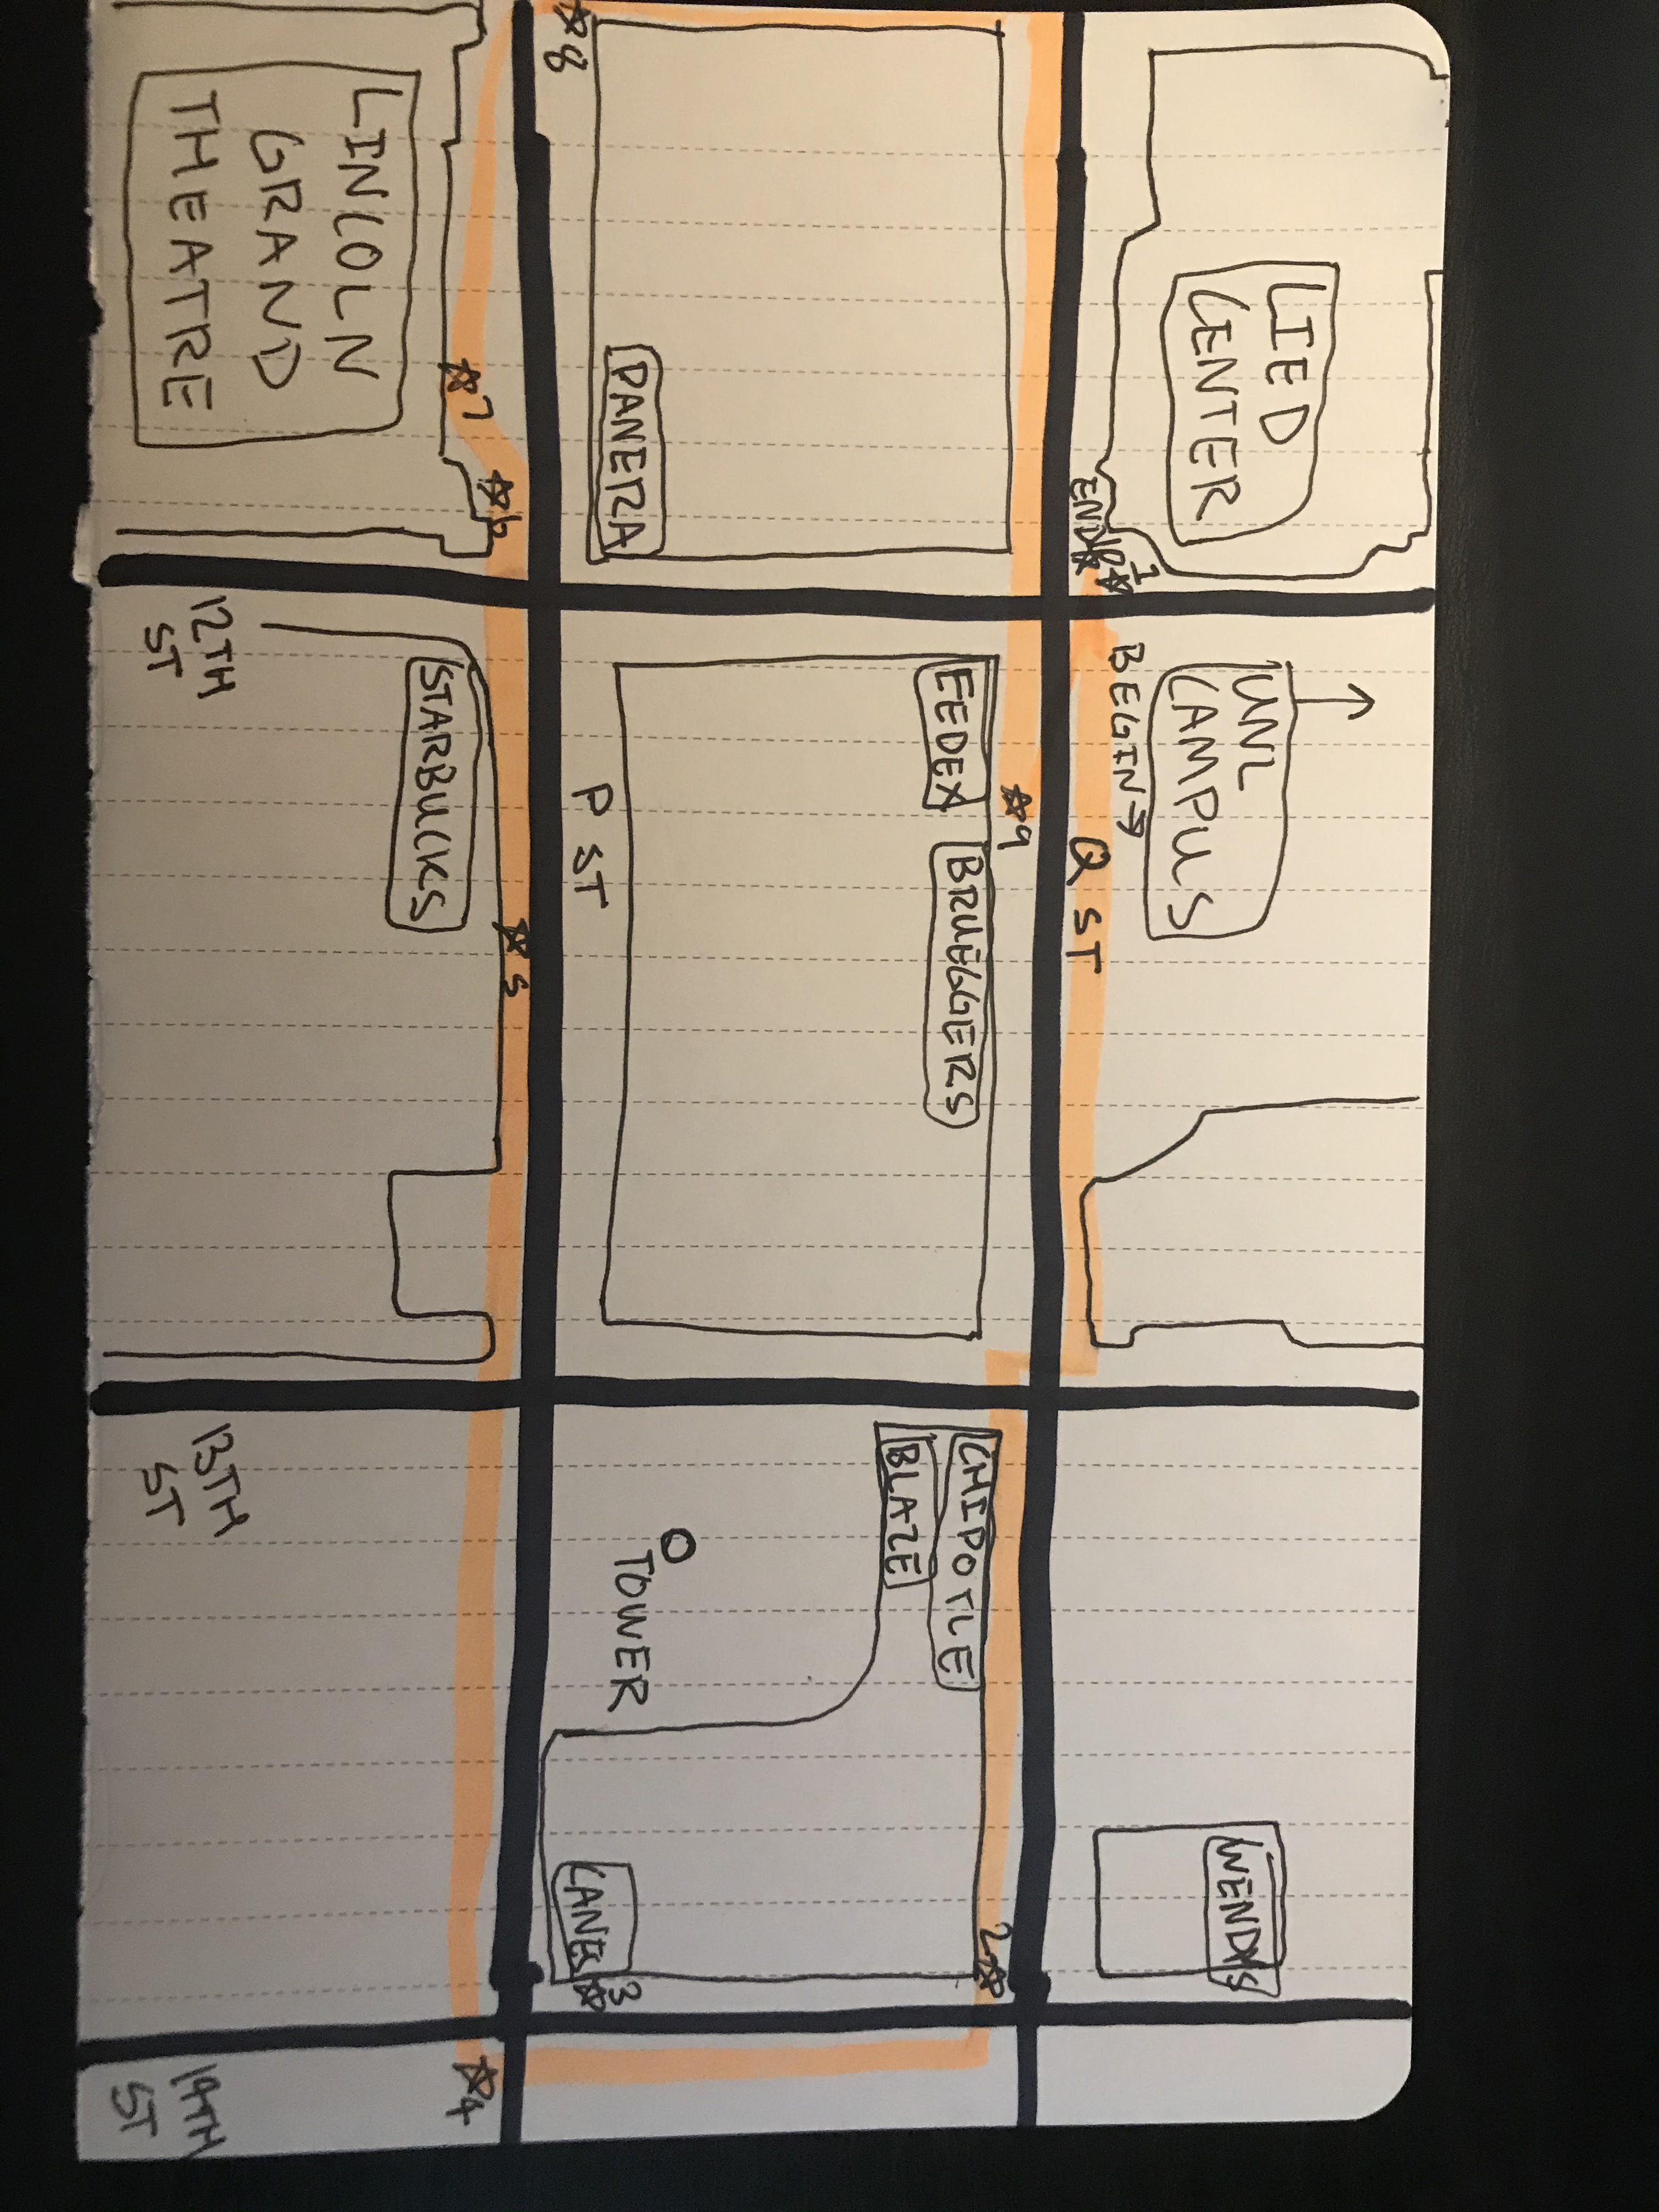 LIED
CENTER
UNL
CAMPUS
WENDYS
1
BEGIN →
END 10
Q ST
9
2
FEDEX
BRUEGGERS
CHIPOTLE
BLAZE
TOWER
PANERA
3
CANES
P ST
8
5
6
7
4
STARBUCKS
LINCOLN
GRAND
THEATRE
12TH
ST
13TH
ST
14TH
ST